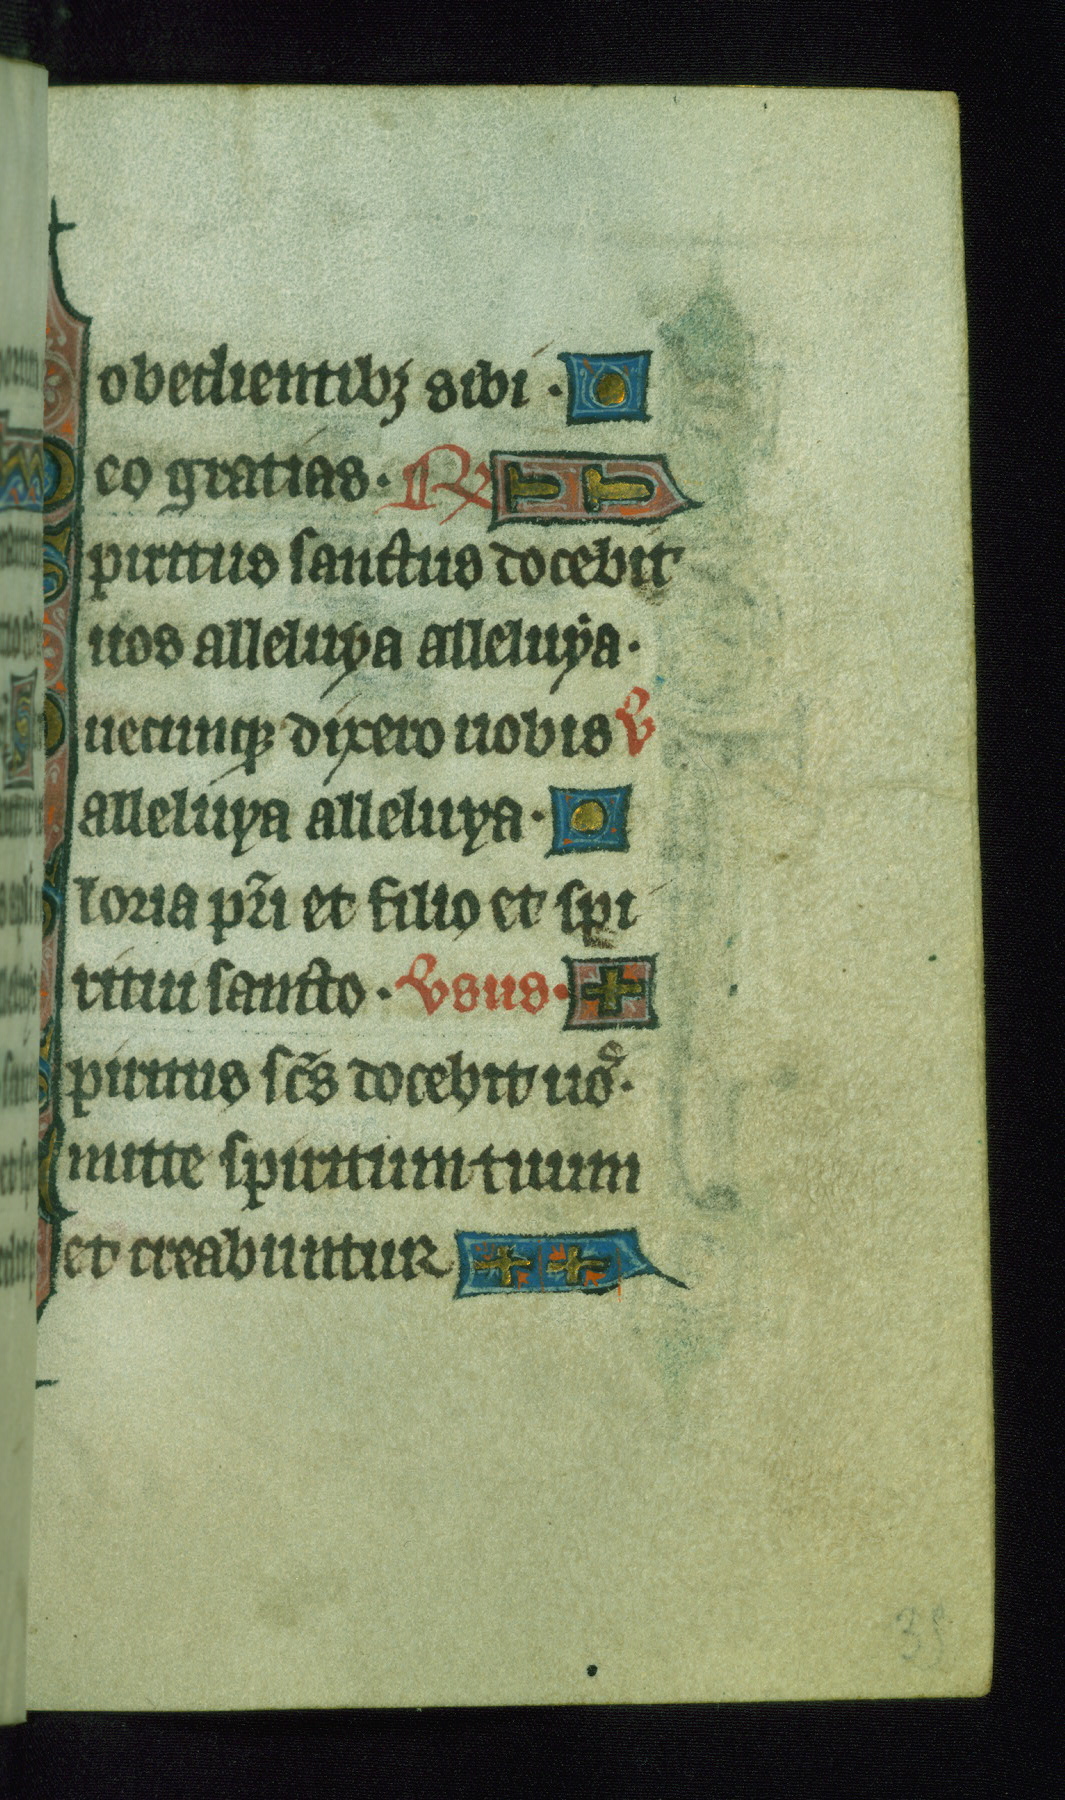 obedientibꝫ sibi ·
eo gratias · ℟
piritus sanctus docebit
uos alleluya alleluya ·
uecumqꝫ dixero uobis ℣
alleluya alleluya ·
loria pr̄i et filio et spi
ritui sancto · Vsus ·
piritus sc̄s docebit uos ·
mitte spiritum tuum
et creabuntur